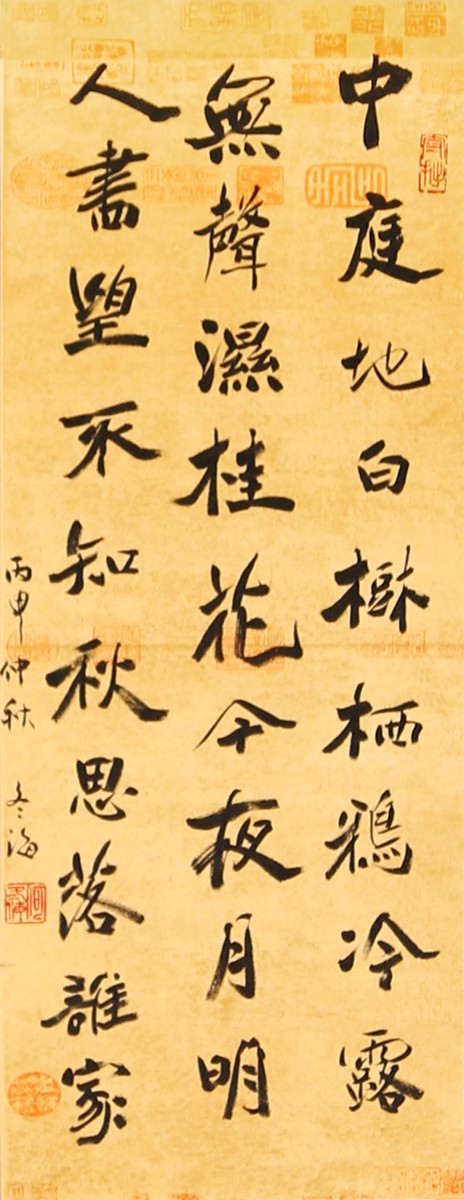 中庭地白樹栖鴉冷露
無聲濕桂花今夜月明
人盡望不知秋思落誰家
丙申仲秋 冬海